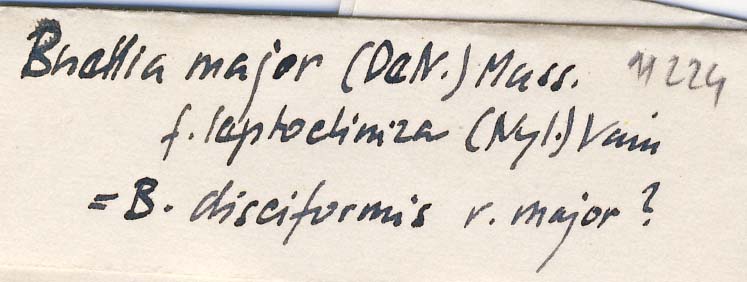 Buellia major (DeN.) Mass. 11224
f. leptocliniza (Nyl.) Vain
= B. disciformis v. major?